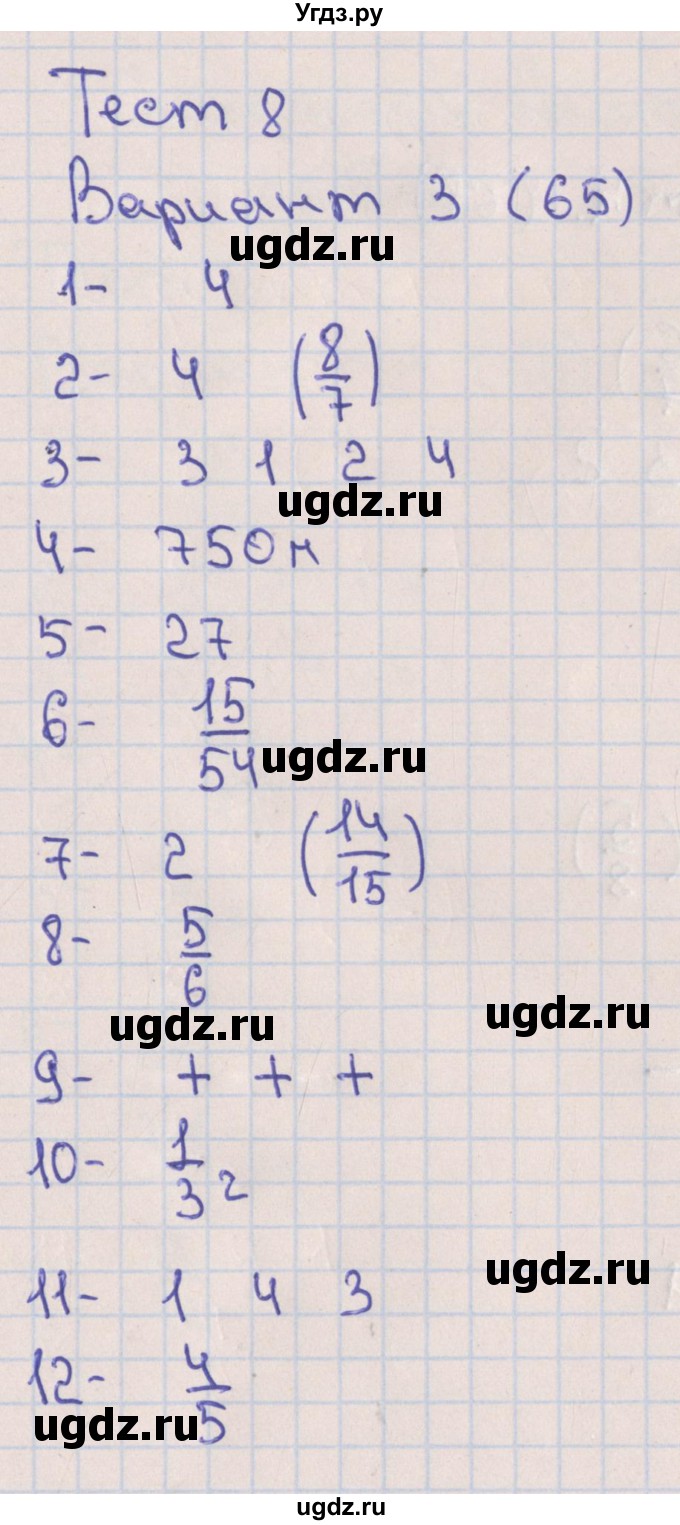 Угдз.ру
Тест 8
Вариант 3 (65)
ugdz.ru
1- 4
2- 4 (8/7)
3- 3 1 2 4
ugdz.ru
4- 750 н
5- 27
6- 15/54
ugdz.ru
7- 2 (14/15)
8- 5/6
ugdz.ru
ugdz.ru
9- + + +
10- 1/3 г
ugdz.ru
11- 1 4 3
12- 4/5
ugdz.ru
ugdz.ru